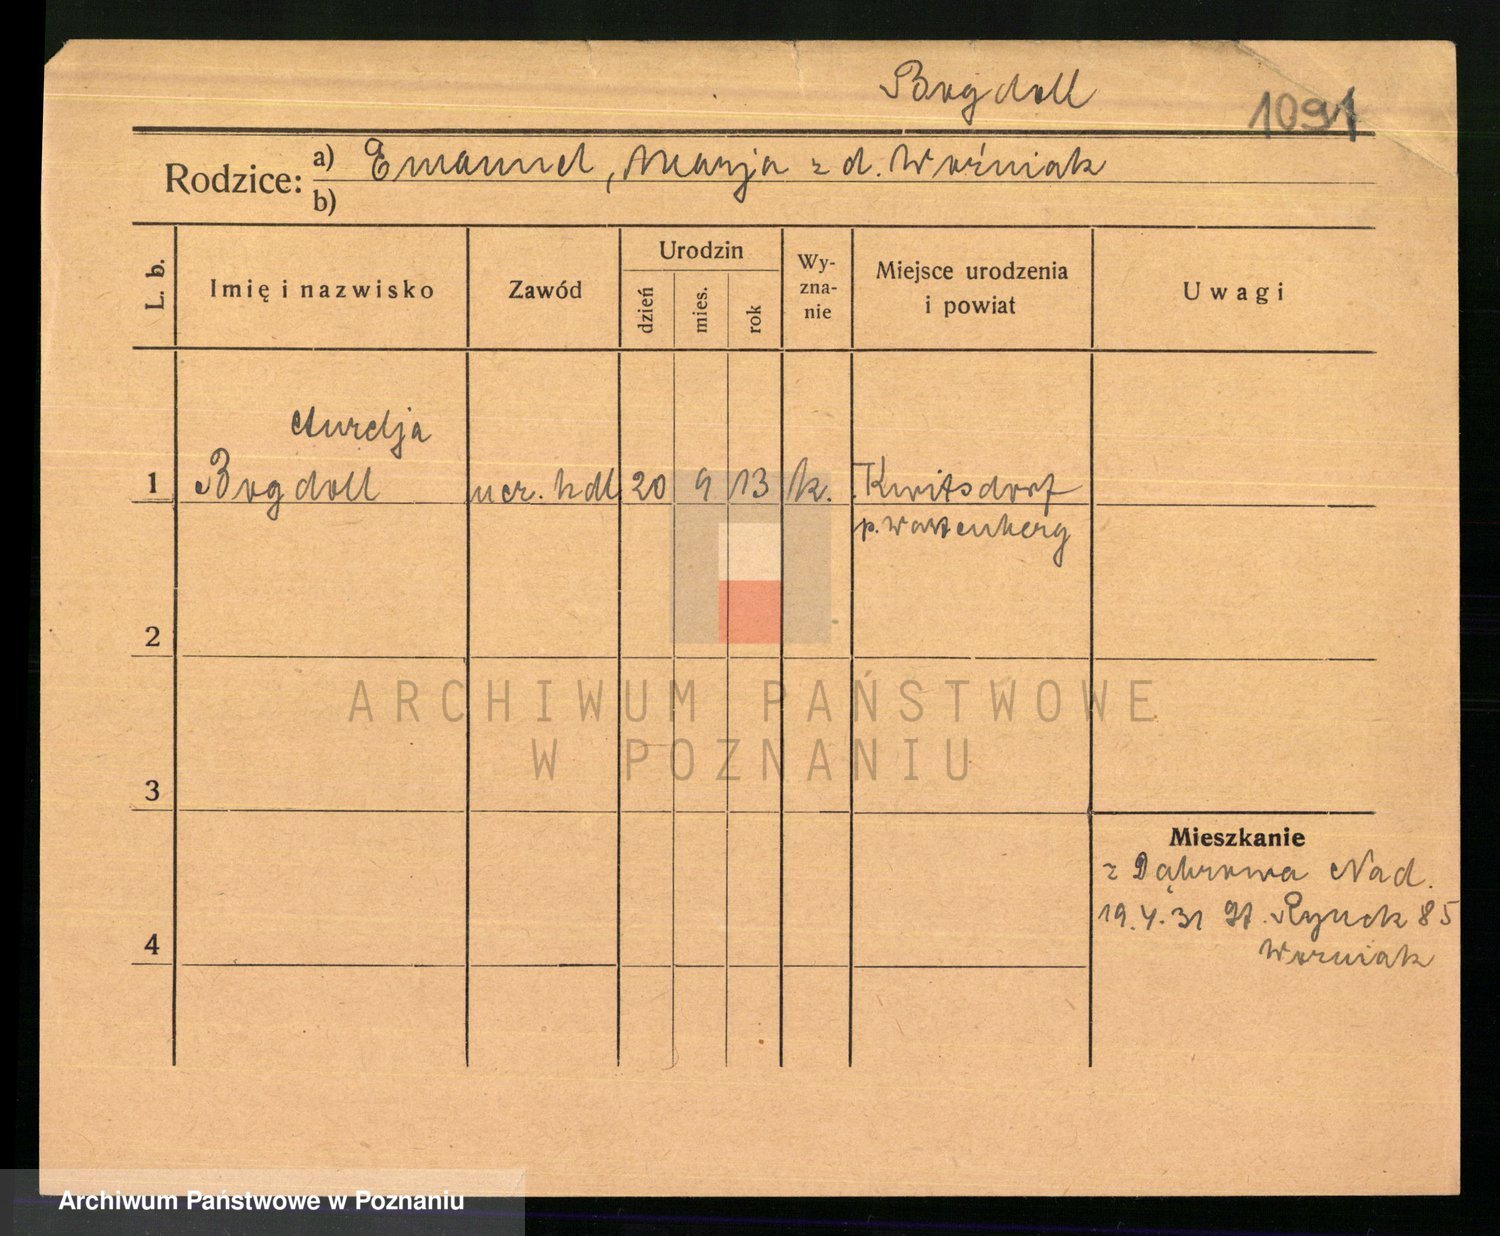 Bogdoll
1091
Rodzice: a) Emanuel, Marja z d. Woźniak
b)
L. b.
Imię i nazwisko
Zawód
Urodzin
dzień
mies.
rok
Wy-
zna-
nie
Miejsce urodzenia
i powiat
Uwagi
Aurelja
1 Bogdoll ucz. hdl 20 9 13 k.
p. Wartenberg
2
3
4
ARCHIWUM PAŃSTWOWE
W POZNANIU
Mieszkanie
z Dąbrowa Nad.
19.4.31 St. Rynek 85
Woźniak
Archiwum Państwowe w Poznaniu